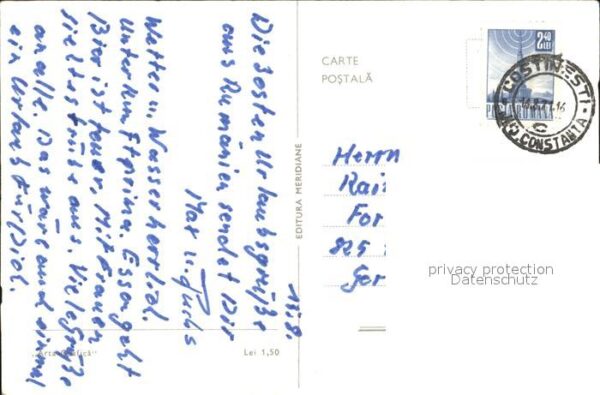 13.8.
Die besten Urlaubsgrüße
aus Rumänien sendet Dir
Max u.
Wetter u. Wasser herrlich.
Unterkunft prima. Essen geht
Bier ist teuer. Mit Frauen
sieht es trübe aus. Viele Grüße
an alle. Das wäre auch einmal
ein Urlaub für Dich.
"Arta Grafică"
Lei 1,50
EDITURA MERIDIANE
CARTE
POȘTALĂ
2,40
LEI
COSTINEȘTI
CONSTANȚA
Herrn
Rai
For
825
privacy protection
Datenschutz